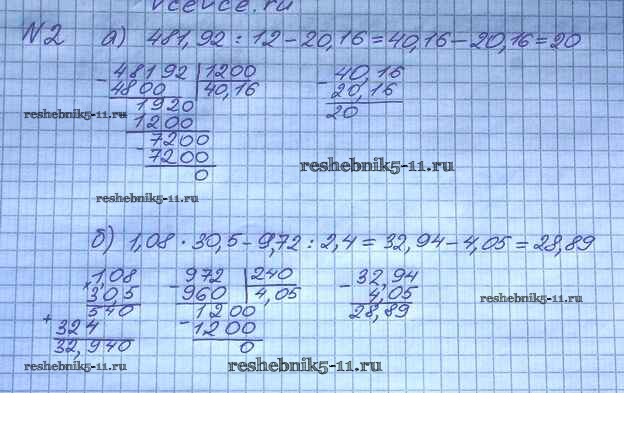 vcevce.ru
№2 а) 481,92 : 12 – 20,16 = 40,16 – 20,16 = 20
- 48192 | 1200
4800 | 40,16
1920
1200
7200
- 7200
0
- 40,16
20,16
20
reshebnik5-11.ru
reshebnik5-11.ru
reshebnik5-11.ru
б) 1,08 · 30,5 – 9,72 : 2,4 = 32,94 – 4,05 = 28,89
× 1,08
305
540
+ 324
32,940
- 972 | 240
960 | 4,05
1200
- 1200
0
- 32,94
4,05
28,89
reshebnik5-11.ru
reshebnik5-11.ru
reshebnik5-11.ru